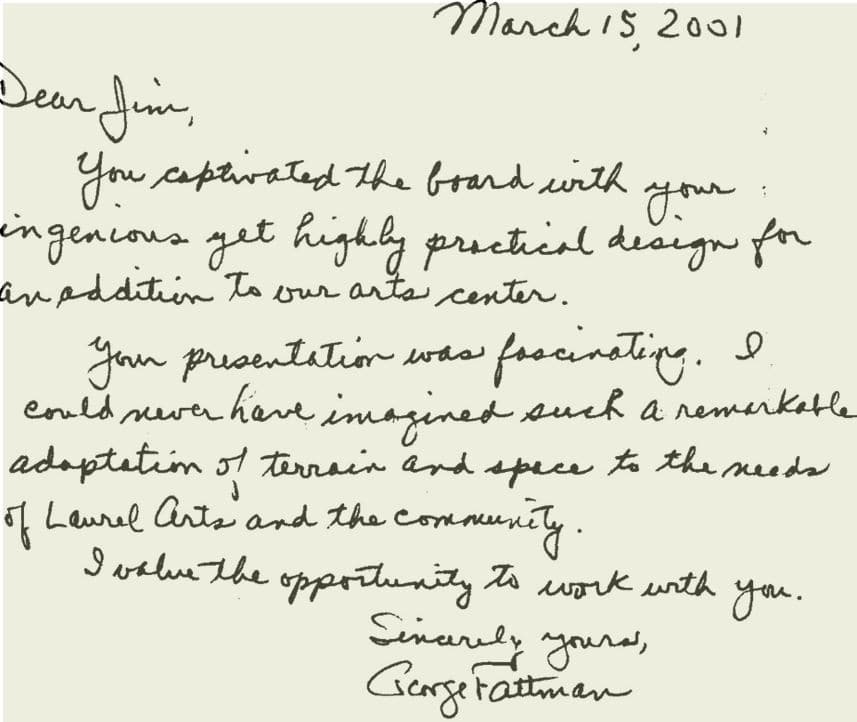 March 15, 2001
Dear Jim,
You captivated the board with your
ingenious yet highly practical design for
an addition to our arts center.
Your presentation was fascinating. I
could never have imagined such a remarkable
adaptation of terrain and space to the needs
of Laurel Arts and the community.
I value the opportunity to work with you.
Sincerely yours,
George Fattman